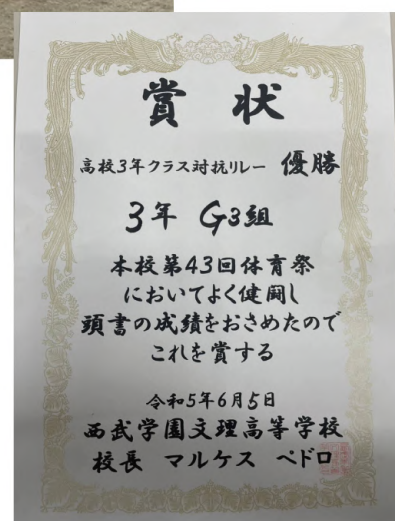 賞 状
高校3年クラス対抗リレー 優勝
3年 G3組
本校第43回体育祭
においてよく健闘し
頭書の成績をおさめたので
これを賞する
令和5年6月5日
西武学園文理高等学校
校長 マルケス ペドロ